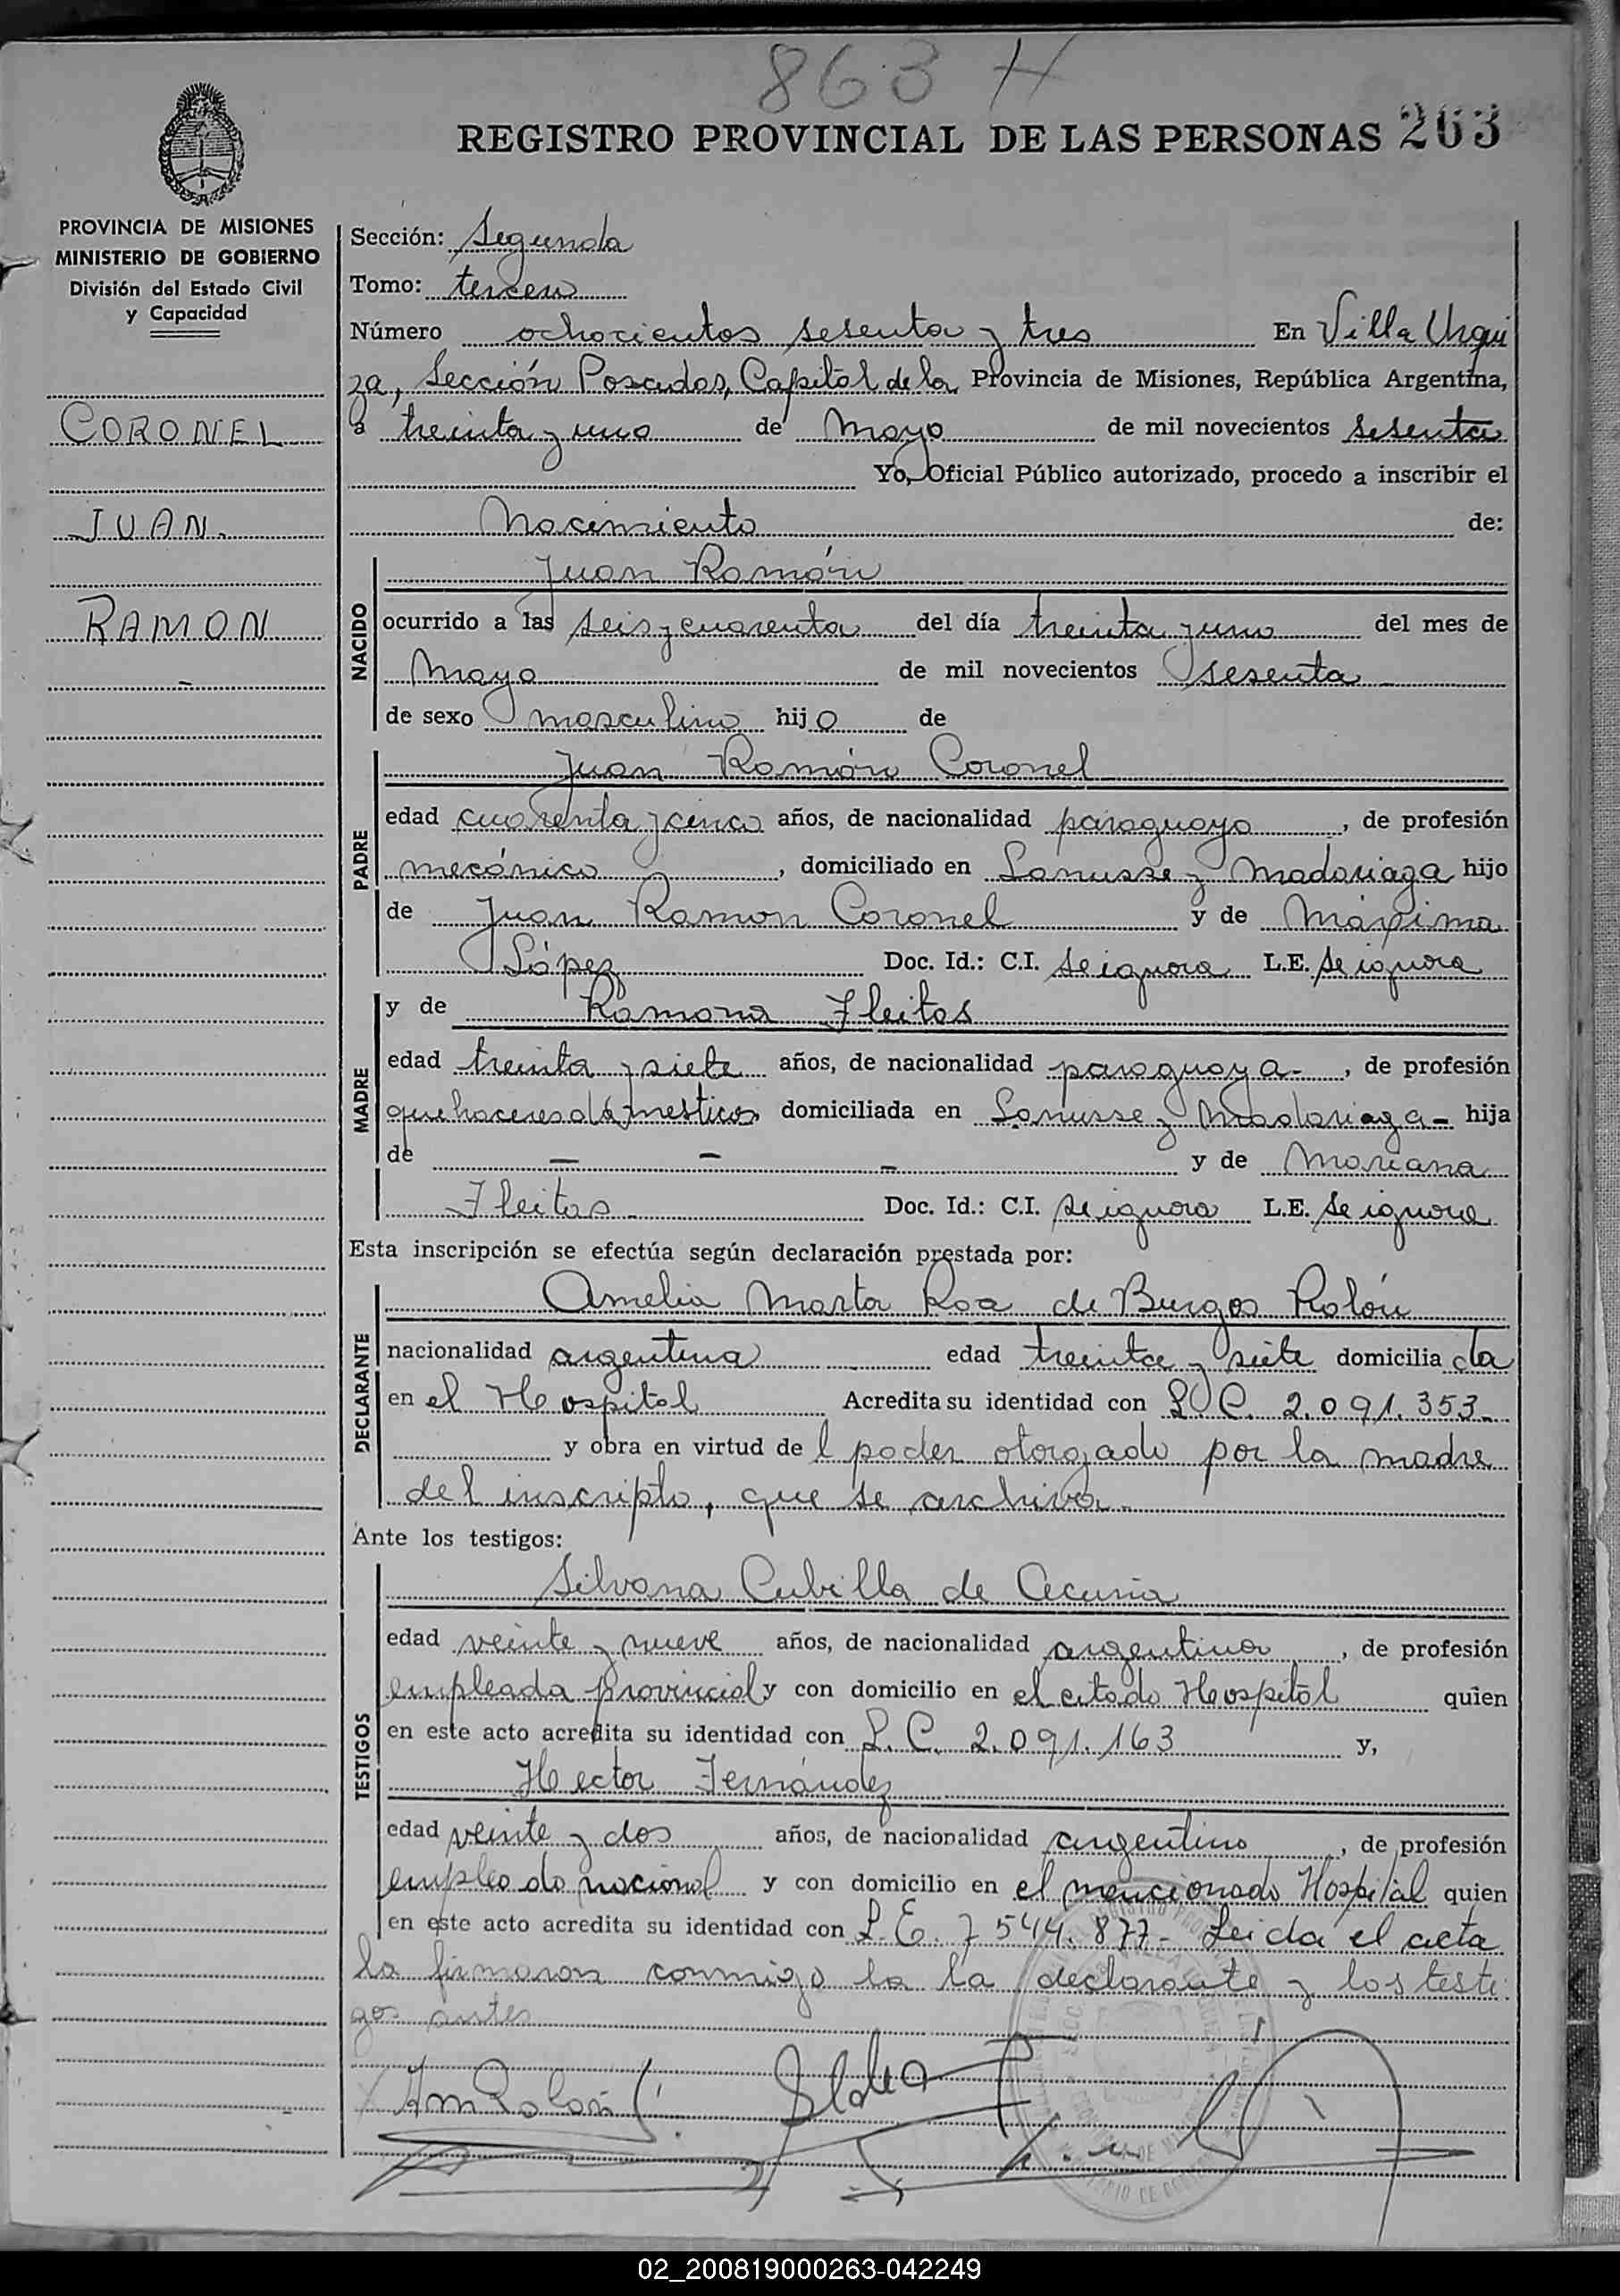 863 H
REGISTRO PROVINCIAL DE LAS PERSONAS 263
PROVINCIA DE MISIONES
MINISTERIO DE GOBIERNO
División del Estado Civil
y Capacidad
CORONEL
JUAN.
RAMON
Sección: Segunda
Tomo: tercero
Número ochocientos sesenta y tres En Villa Urqui
za, Sección Posadas, Capital de la Provincia de Misiones, República Argentina,
a treinta y uno de Mayo de mil novecientos sesenta
Yo, Oficial Público autorizado, procedo a inscribir el
Nacimiento de:
NACIDO
Juan Ramón
ocurrido a las seis y cuarenta del día treinta y uno del mes de
Mayo de mil novecientos sesenta
de sexo masculino hijo de
PADRE
Juan Ramón Coronel
edad cuarenta y cinco años, de nacionalidad paraguayo, de profesión
mecánico, domiciliado en Lanusse y Madariaga hijo
de Juan Ramon Coronel y de Máxima
López Doc. Id.: C.I. se ignora L.E. se ignora
MADRE
y de Ramona Fleitas
edad treinta y siete años, de nacionalidad paraguaya-, de profesión
quehaceres domésticos domiciliada en Lanusse y Madariaga- hija
de - - - y de Mariana
Fleitas- Doc. Id.: C.I. se ignora L.E. se ignora
Esta inscripción se efectúa según declaración prestada por:
DECLARANTE
Amelia Marta Roa de Burgos Rolón
nacionalidad argentina edad treinta y siete domiciliada
en el Hospital Acredita su identidad con L.C. 2.091.353-
y obra en virtud del poder otorgado por la madre
del inscripto, que se archiva-
Ante los testigos:
TESTIGOS
Silvana Cubilla de Acuña
edad veinte y nueve años, de nacionalidad argentina, de profesión
empleada provincial y con domicilio en el citado Hospital quien
en este acto acredita su identidad con L.C. 2.091.163 y,
Hector Fernández
edad veinte y dos años, de nacionalidad argentino, de profesión
empleado nacional y con domicilio en el mencionado Hospital quien
en este acto acredita su identidad con L.E. 7 544.877- Leida el acta
la firmaron conmigo la la declarante y los testi
gos antes
AmRolón
02_200819000263-042249